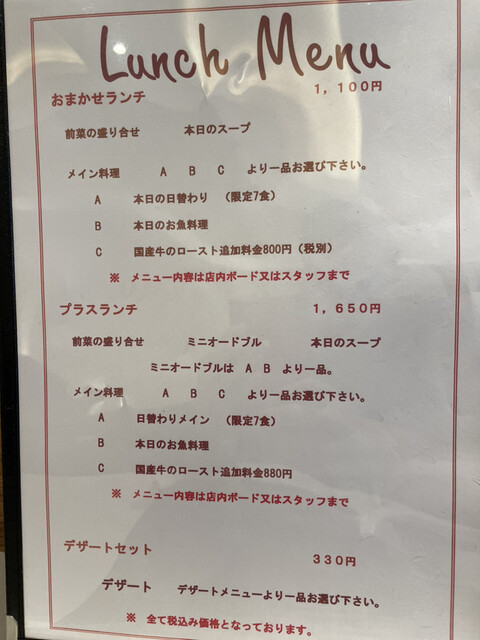 Lunch Menu
おまかせランチ 1,100円
前菜の盛り合せ 本日のスープ
メイン料理 A B C より一品お選び下さい。
A 本日の日替わり (限定7食)
B 本日のお魚料理
C 国産牛のロースト追加料金800円(税別)
※ メニュー内容は店内ボード又はスタッフまで
プラスランチ 1,650円
前菜の盛り合せ ミニオードブル 本日のスープ
ミニオードブルは A B より一品。
メイン料理 A B C より一品お選び下さい。
A 日替わりメイン (限定7食)
B 本日のお魚料理
C 国産牛のロースト追加料金880円
※ メニュー内容は店内ボード又はスタッフまで
デザートセット 330円
デザート デザートメニューより一品お選び下さい。
※ 全て税込み価格となっております。